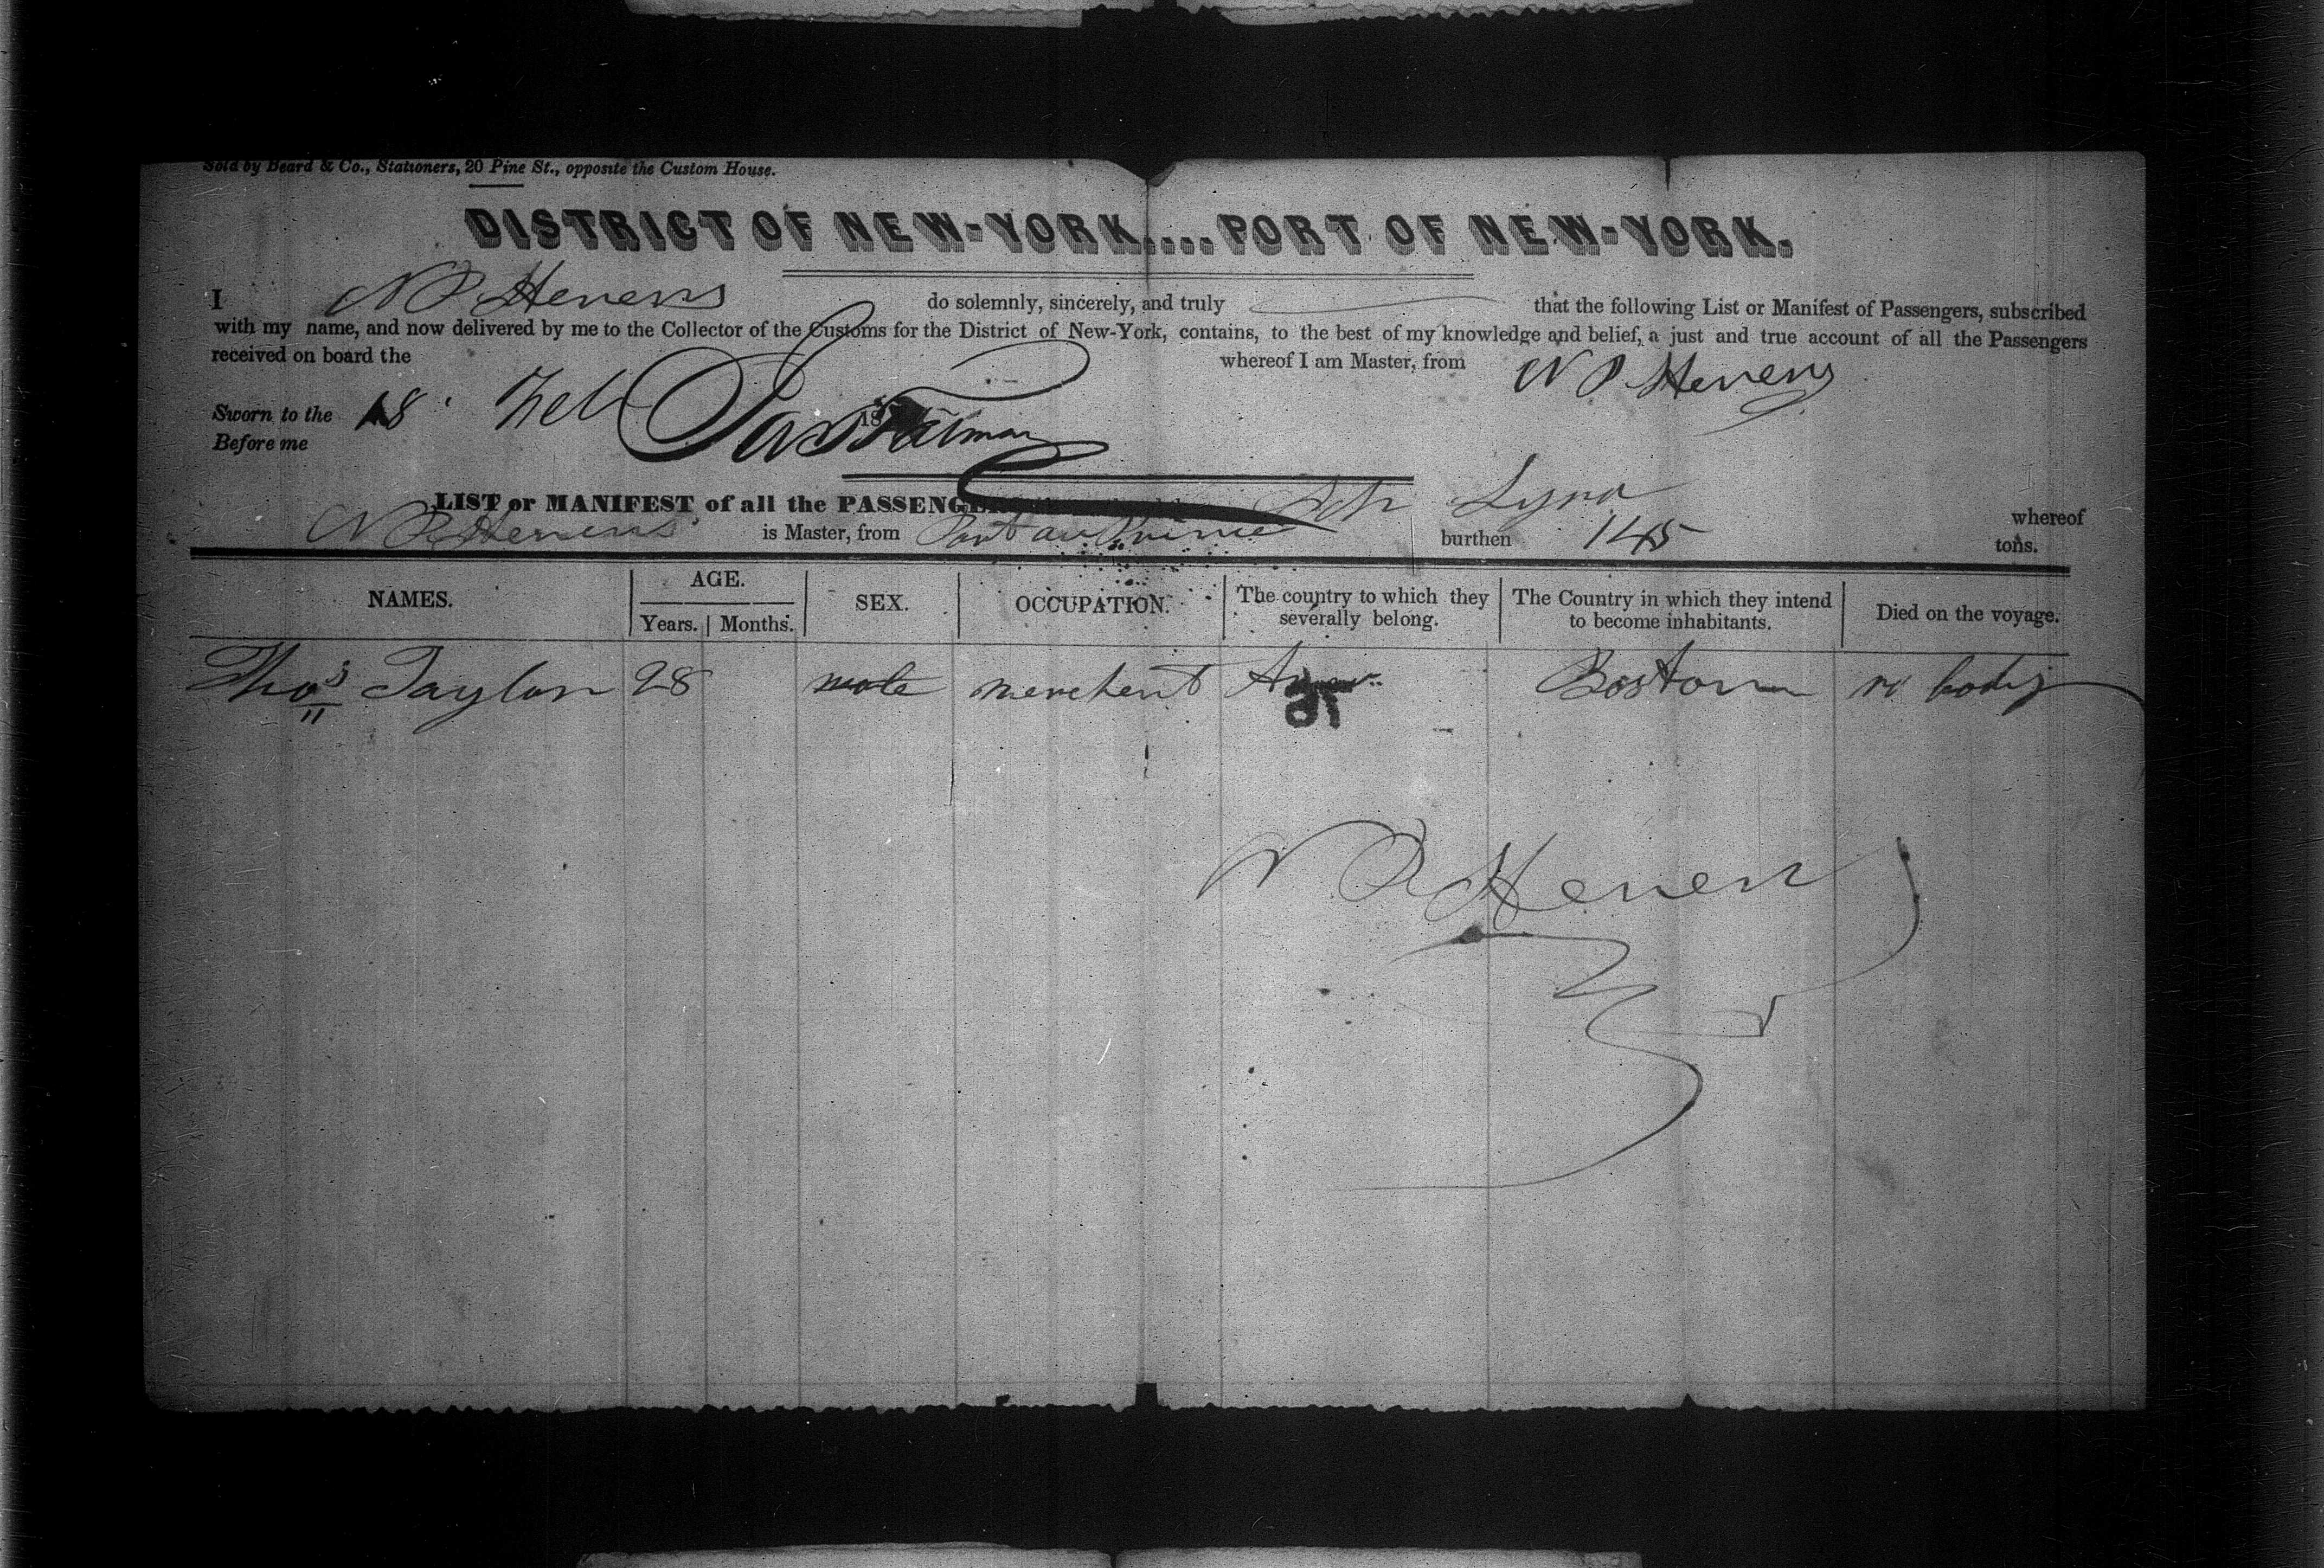 Sold by Beard & Co., Stationers, 20 Pine St., opposite the Custom House.
DISTRICT OF NEW-YORK....PORT OF NEW-YORK.
I N P Hevens do solemnly, sincerely, and truly that the following List or Manifest of Passengers, subscribed
with my name, and now delivered by me to the Collector of the Customs for the District of New-York, contains, to the best of my knowledge and belief, a just and true account of all the Passengers
received on board the whereof I am Master, from N P Hevens
Sworn to the 18 Feb 18
Before me
LIST or MANIFEST of all the PASSENGERS Sch Lyra whereof
N P Hevens is Master, from Port au Prince burthen 145 tons.
NAMES. AGE. SEX. OCCUPATION. The country to which they severally belong. The Country in which they intend to become inhabitants. Died on the voyage.
Years. Months.
Thos Taylor 28 male merchent Boston no body
16
N P Hevens